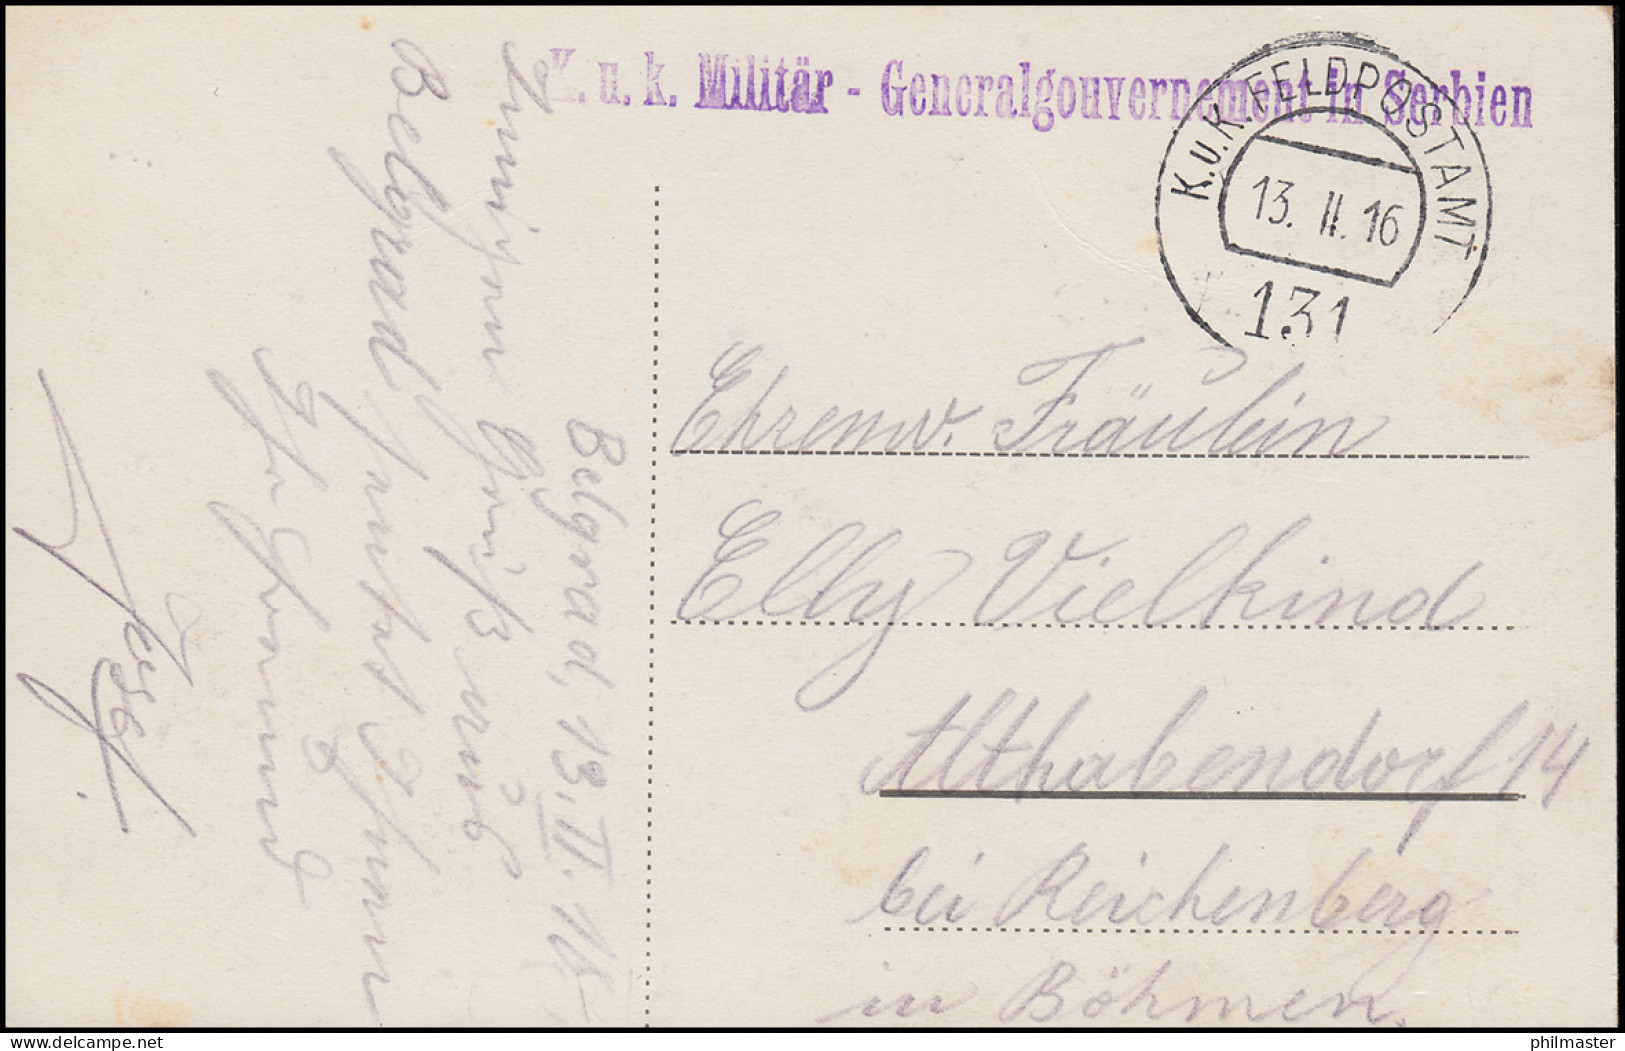 K. u. k. Militär - Generalgouvernement in Serbien
K.u.K. FELDPOSTAMT
13. II. 16
131
Belgrad, 13. II. 16.
Innigen Gruß aus
Belgrad sendet Ihnen
Ihr Freund
Ehrenw. Fräulein
Elly Vielkind
Althabendorf 14
bei Reichenberg
in Böhmen.
delcampe.net
philmaster